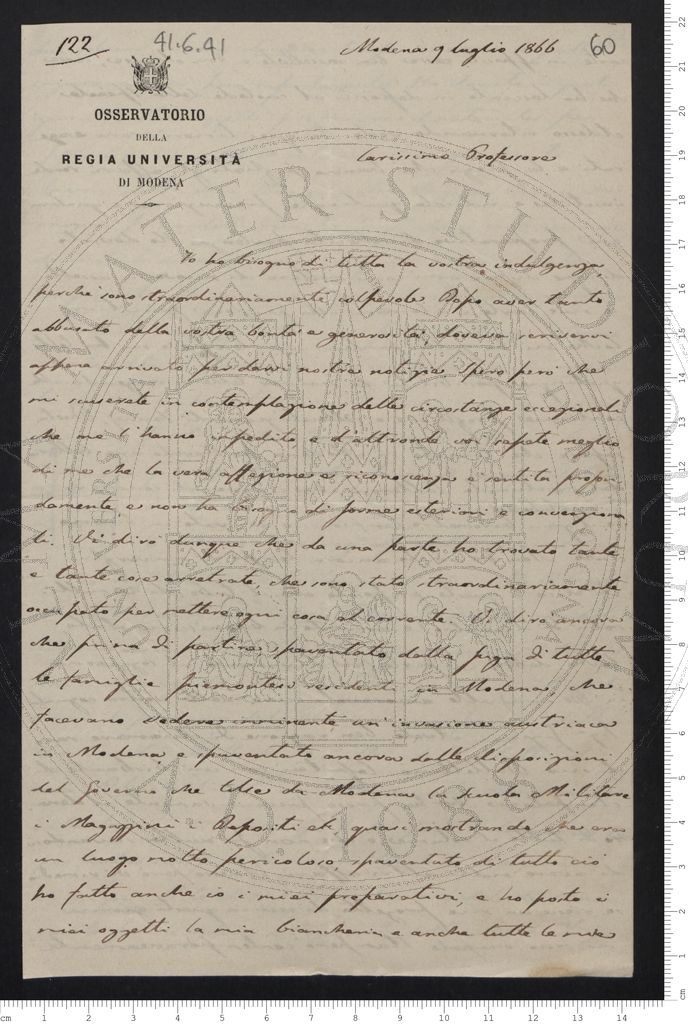 122
41.6.41
Modena 9 luglio 1866
60
OSSERVATORIO
DELLA
REGIA UNIVERSITÀ
DI MODENA
Carissimo Professore
Io ho bisogno di tutta la vostra indulgenza,
perchè sono straordinariamente colpevole. Dopo aver tanto
abbusato della vostra bontà e generosità, doveva scrivervi
appena arrivato per darvi nostre notizie. Spero però che
mi scuserete in contemplazione delle circostanze eccezionali
che me l'hanno impedito e d'altronde voi sapete meglio
di me che la vera affezione e riconoscenza è sentita profon
damente, e non ha bisogno di forme esteriori e convenziona
li. Vi dirò dunque che da una parte ho trovato tante
e tante cose arretrate, che sono stato straordinariamente
occupato per mettere ogni cosa al corrente. Vi dirò ancora
che prima di partire, spaventato dalla fuga di tutte
le famiglie piemontesi residenti in Modena, che
facevano vedere imminente un'invasione austriaca
in Modena, e spaventato ancora dalle disposizioni
del Governo che tolse da Modena la Scuola Militare
i Magazzini i Depositi etc quasi mostrando che era
un luogo molto pericoloso, spaventato di tutto ciò
ho fatto anche io i miei preparativi, e ho posto i
miei oggetti la mia biancheria e anche tutte le mie
ALMA MATER STUDIORUM
A.D. 1088
cm 1 2 3 4 5 6 7 8 9 10 11 12 13 14
cm 1 2 3 4 5 6 7 8 9 10 11 12 13 14 15 16 17 18 19 20 21 22